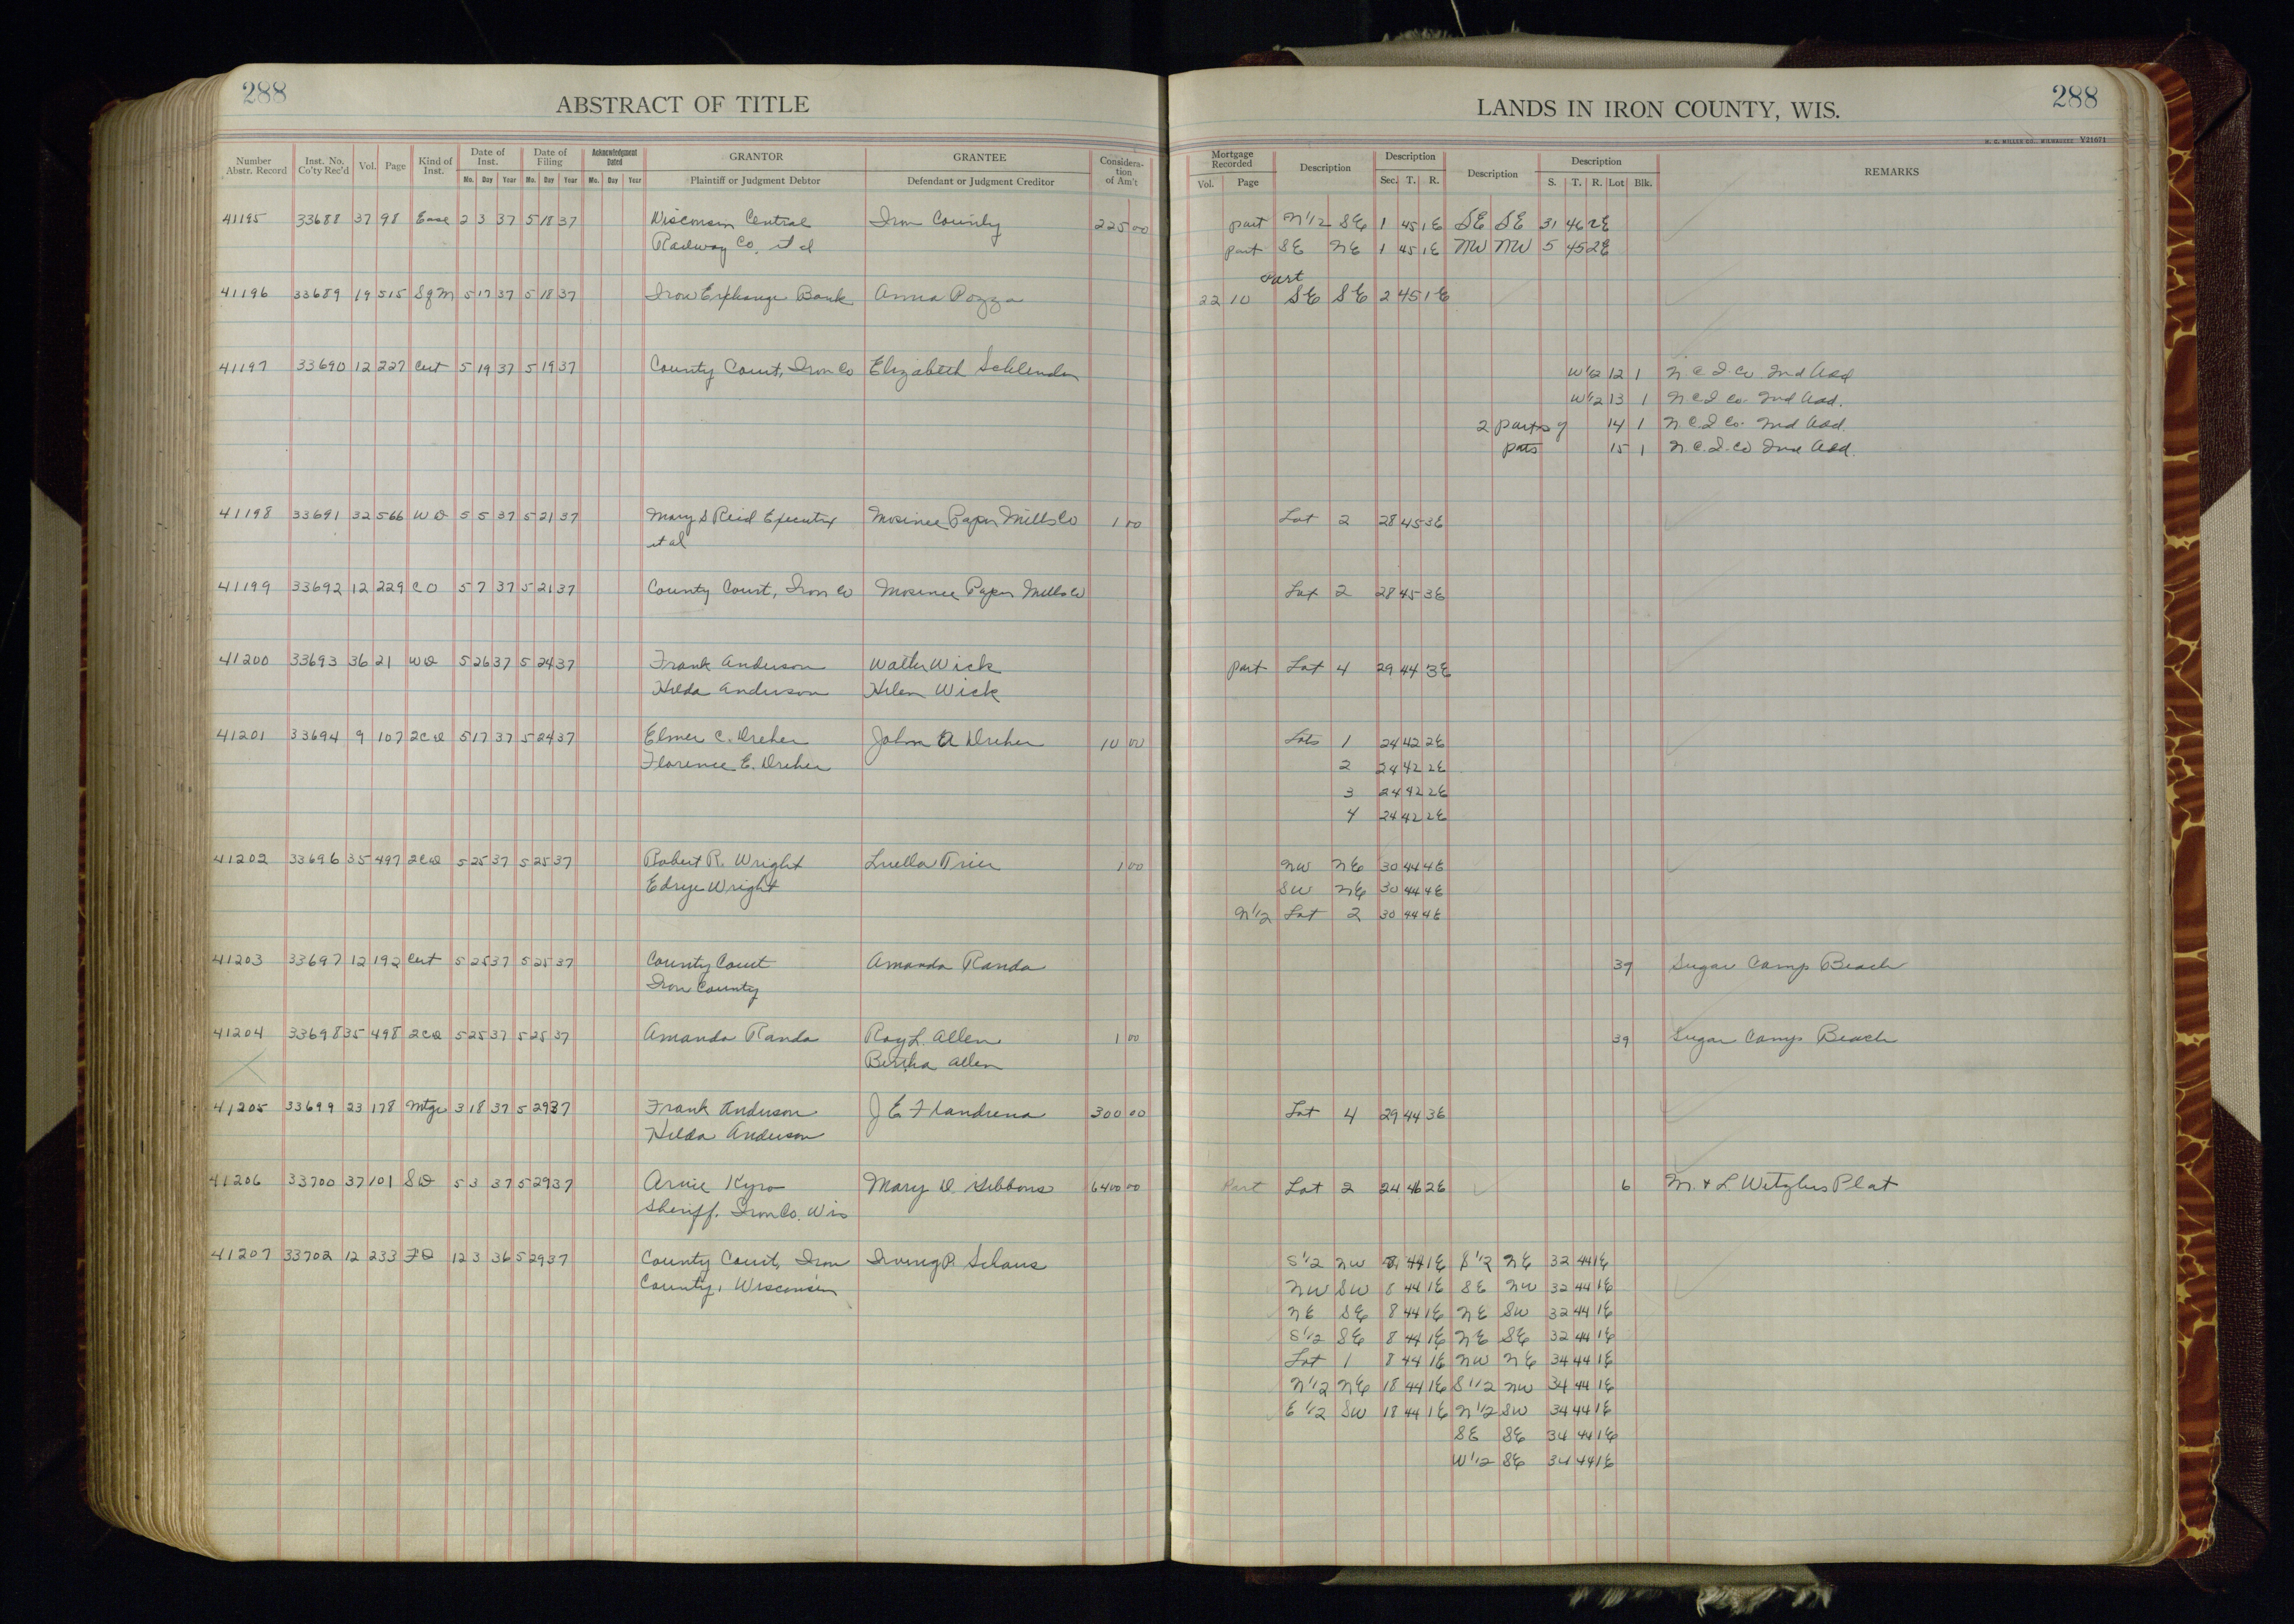 288
ABSTRACT OF TITLE
Number Abstr. Record
Inst. No. Co'ty Rec'd
Vol.
Page
Kind of Inst.
Date of Inst.
Mo. Day Year
Date of Filing
Mo. Day Year
Acknowledgment Dated
Mo. Day Year
GRANTOR
Plaintiff or Judgment Debtor
GRANTEE
Defendant or Judgment Creditor
Considera-tion of Am't
41195 33688 37 98 Ease 2 3 37 5 18 37 Wisconsin Central Iron County 225 00
Railway Co. et al
41196 33689 19 515 SgM 5 17 37 5 18 37 Iron Exchange Bank Anna Pozza
41197 33690 12 227 Cert 5 19 37 5 19 37 County Court, Iron Co Elizabeth
41198 33691 32 566 WD 5 5 37 5 21 37 Mary S Reid Executrix Mosinee Paper Mills Co 1 00
et al
41199 33692 12 229 CO 5 7 37 5 21 37 County Court, Iron Co Mosinee Paper Mills Co
41200 33693 36 21 WD 5 26 37 5 24 37 Frank Anderson Walter Wick
Hilda Anderson Helen Wick
41201 33694 9 107 2CD 5 17 37 5 24 37 Elmer C. Dreher John A Dreher 10 00
Florence E. Dreher
41202 33696 35 497 2CD 5 25 37 5 25 37 Robert R. Wright Luella Trier 1 00
Edrye Wright
41203 33697 12 192 Cert 5 25 37 5 25 37 County Court Amanda Randa
Iron County
41204 33698 35 498 2CD 5 25 37 5 25 37 Amanda Randa Roy L. Allen 1 00
Bertha Allen
41205 33699 23 178 Mtge 3 18 37 5 29 37 Frank Anderson J E Flandrena 300 00
Hilda Anderson
41206 33700 37 101 SD 5 3 37 5 29 37 Arvie Kyro Mary D. Gibbons 6400 00
Sheriff. Iron Co. Wis
41207 33702 12 233 FD 12 3 36 5 29 37 County Court, Iron Irving P. Schaus
County, Wisconsin
LANDS IN IRON COUNTY, WIS.
288
H. C. MILLER CO., MILWAUKEE V21671
Mortgage Recorded
Vol. Page
Description
Description
Sec. T. R.
Description
Description
S. T. R. Lot Blk.
REMARKS
part N1/2 SE 1 45 1E SE SE 31 46 2E
part SE NE 1 45 1E NW NW 5 45 2E
Part
22 10 SE SE 2 45 1E
W1/2 12 1 N.C.I. Co 2nd Add
W1/2 13 1 N C I Co. 2nd Add.
2 parts of 14 1 N.C.I Co. 2nd Add.
15 1 N.C.I. Co 2nd Add.
Lot 2 28 45 3E
Lot 2 28 45 3E
part Lot 4 29 44 3E
Lots 1 24 42 2E
2 24 42 2E
3 24 42 2E
4 24 42 2E
NW NE 30 44 4E
SW NE 30 44 4E
N1/2 Lot 2 30 44 4E
39 Sugar Camp Beach
39 Sugar Camp Beach
Lot 4 29 44 3E
Part Lot 2 24 46 2E 6 M. & L. Plat
S1/2 NW 8 44 1E S1/2 NE 32 44 1E
NW SW 8 44 1E SE NW 32 44 1E
NE SE 8 44 1E NE SW 32 44 1E
S1/2 SE 8 44 1E NE SE 32 44 1E
Lot 1 8 44 1E NW NE 34 44 1E
N1/2 NE 18 44 1E S1/2 NW 34 44 1E
E1/2 SW 18 44 1E N1/2 SW 34 44 1E
SE SE 34 44 1E
W1/2 SE 34 44 1E